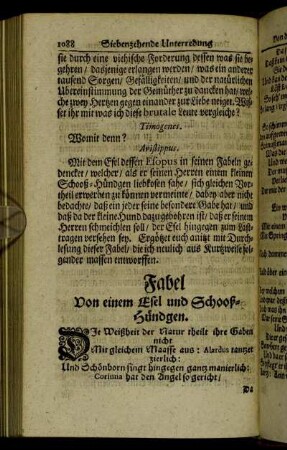 1088 Siebenzehende Unterredung
sie durch eine viehische Forderung dessen was sie be-
gehren / dasjenige erlangen werden / was ein anderer
tausend Sorgen / Gefälligkeiten / und der natürlichen
Übereinstimmung der Gemüther zu dancken hat / wel-
che zwey Hertzen gegen einander zur Liebe neiget. Wis-
set ihr mit was ich diese brutale Leute vergleiche?
Timogenes.
Womit denn?
Aristippus.
Mit dem Esel dessen Esopus in seinen Fabeln ge-
dencket / welcher / als er seinen Herren einem kleinen
Schooß-Hündgen liebkosen sahe / sich gleichen Vor-
theil erwerben zu können vermeinte / dabey aber nicht
bedachte / daß ein jeder seine besondere Gabe hat / und
daß da der kleine Hund dazu gebohren ist / daß er seinem
Herren schmeichlen soll / der Esel hingegen zum Last-
tragen versehen sey. Ergötzet euch anitzt mit Durch-
lesung dieser Fabel / die ich neulich aus Kurtzweile fol-
gender massen entworffen.
Fabel
Von einem Esel und Schooß-
Hündgen.
Die Weißheit der Natur theilt ihre Gaben
nicht
Mit gleichem Maasse aus: Alardus tantzet
zierlich:
Und Schönhorn singt hingegen gantz manierlich:
Corinna hat den Angel so gericht /
Da